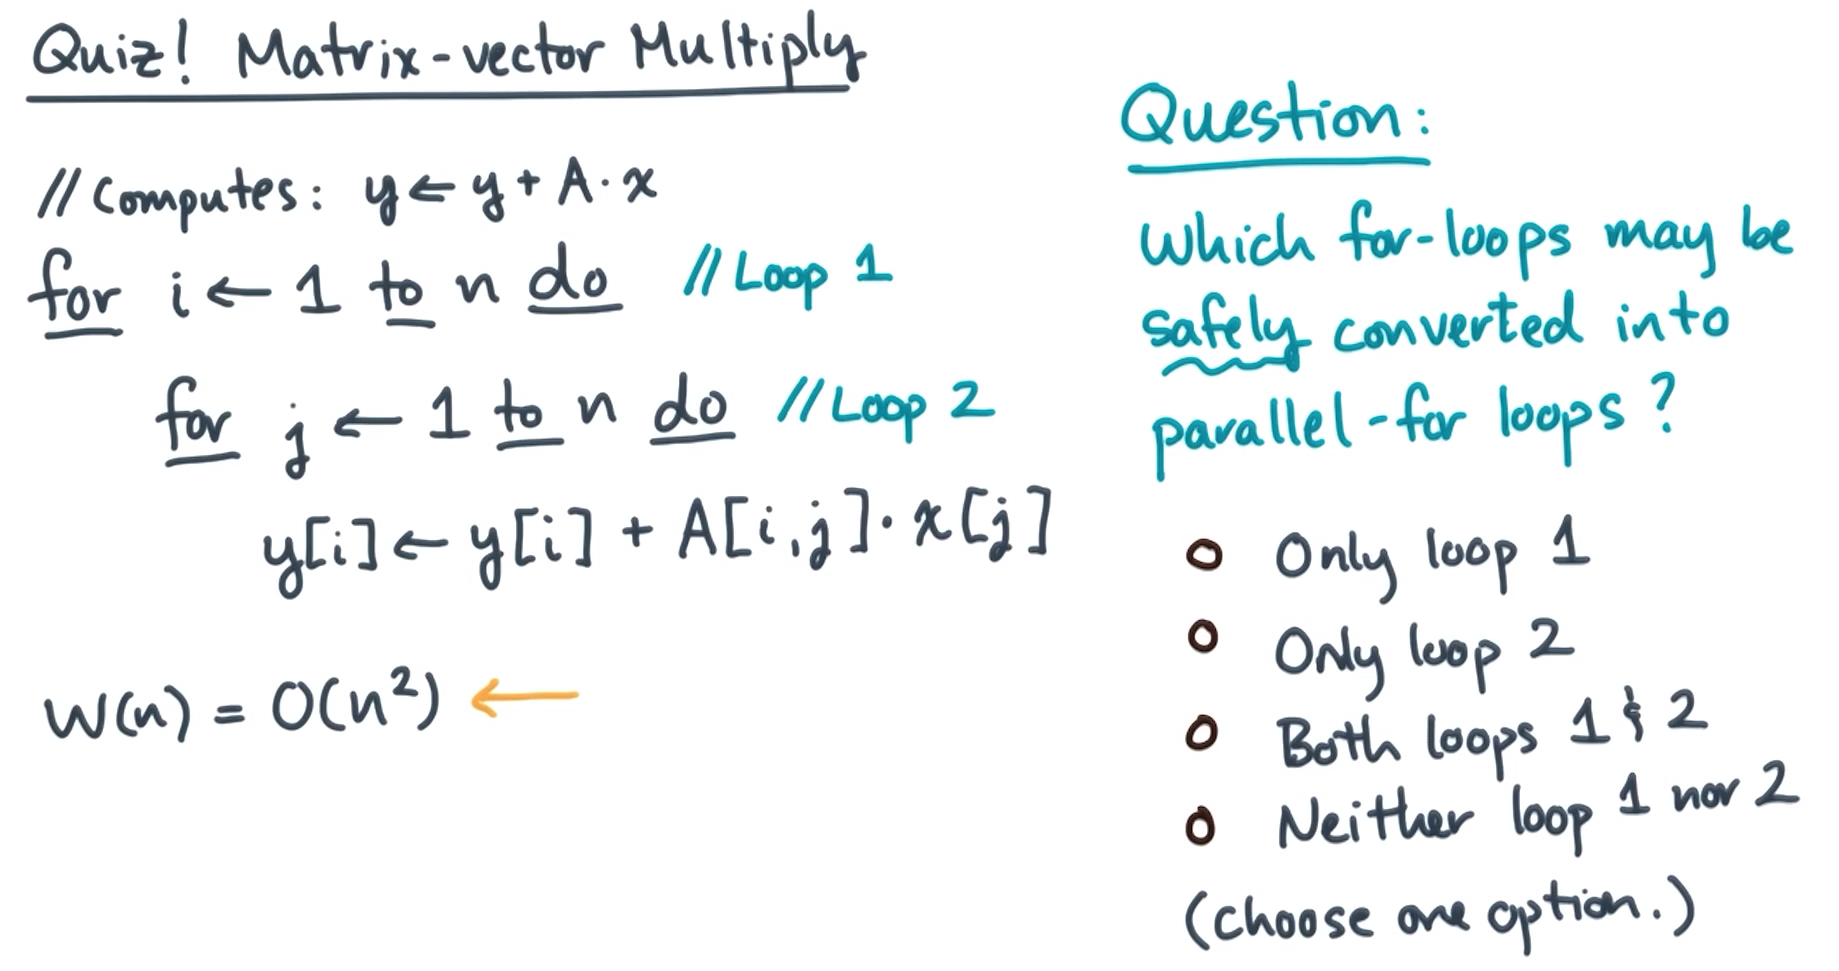 Quiz! Matrix-vector Multiply
// Computes: y ← y + A · x
for i ← 1 to n do // Loop 1
for j ← 1 to n do // Loop 2
y[i] ← y[i] + A[i,j] · x[j]
W(n) = O(n²) ←
Question:
Which for-loops may be
safely converted into
parallel-for loops?
Only loop 1
Only loop 2
Both loops 1 & 2
Neither loop 1 nor 2
(choose one option.)